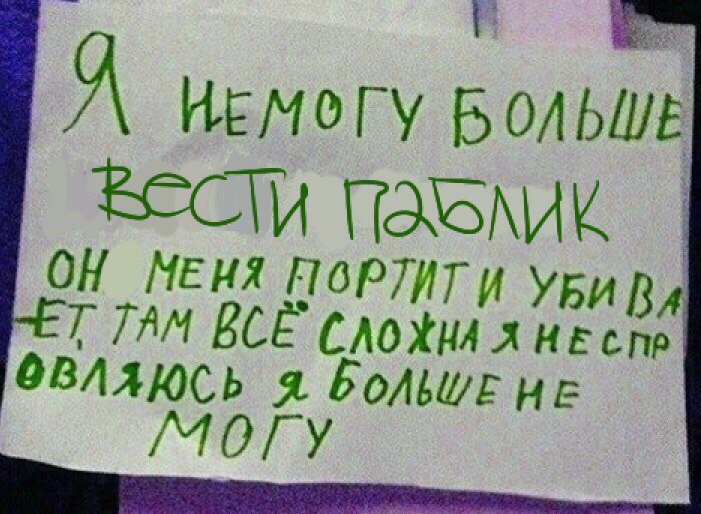 Я НЕМОГУ БОЛЬШЕ
ВЕСТИ ПАБЛИК
ОН МЕНЯ ПОРТИТ И УБИВА
ЕТ, ТАМ ВСЁ СЛОЖНА Я НЕ СПР
ОВЛЯЮСЬ Я БОЛЬШЕ НЕ
МОГУ